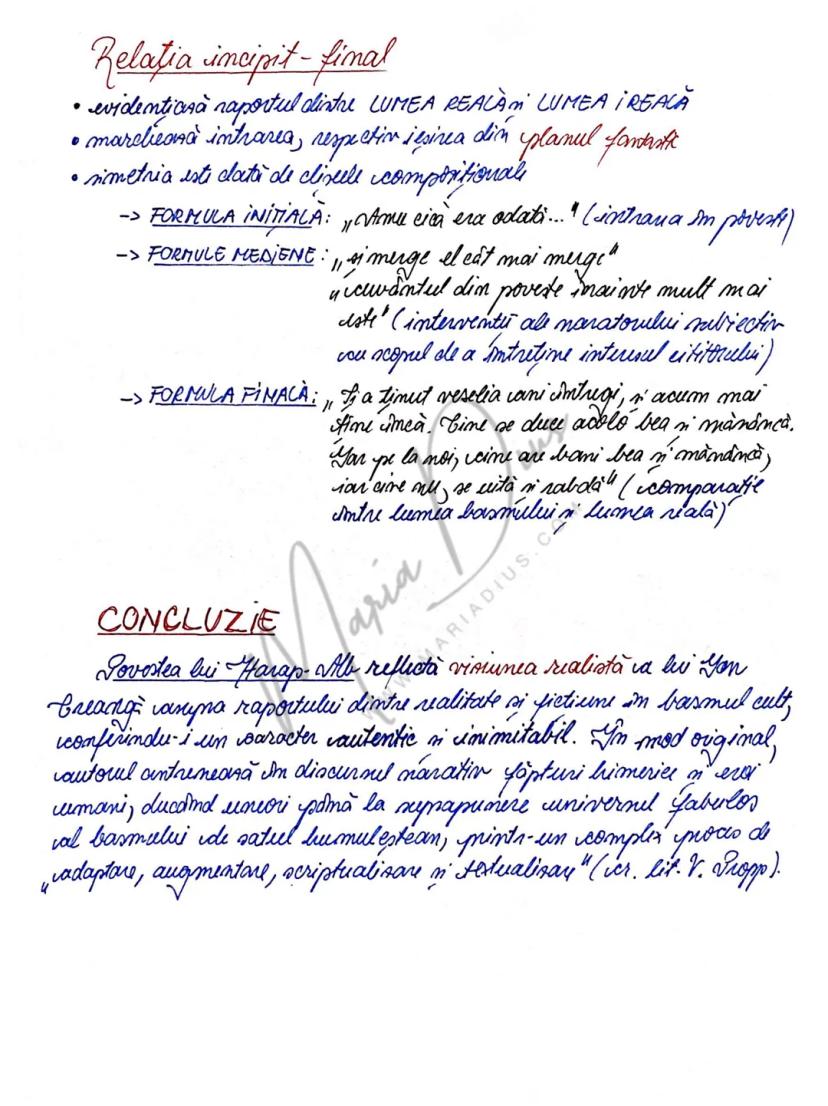 Relația incipit - final
• evidențiază raportul dintre LUMEA REALĂ și LUMEA IREALĂ
• marchează intrarea, respectiv ieșirea din planul fantastic
• simetria este dată de clișeele compoziționale
-> FORMULA INIȚIALĂ: „Amu cică era odată..." (intrarea în poveste)
-> FORMULE MEDIENE: „și merge el cât mai merge"
„cuvântul din poveste înainte mult mai
este" (intervenții ale naratorului subiectiv
cu scopul de a întreține interesul cititorului)
-> FORMULA FINALĂ: „Și a ținut veselia ani întregi, și acum mai
ține încă. Cine se duce acolo bea și mănâncă.
Iar pe la noi, cine are bani bea și mănâncă,
iar cine nu, se uită și rabdă" (comparație
între lumea basmului și lumea reală)
CONCLUZIE
Povestea lui Harap-Alb reflectă viziunea realistă a lui Ion
Creangă asupra raportului dintre realitate și ficțiune în basmul cult,
conferindu-i un caracter autentic și inimitabil. În mod original,
autorul antrenează în discursul narativ făpturi himerice și eroi
umani, ducând uneori până la suprapunere universul fabulos
al basmului de satul humuleștean, printr-un complex proces de
„adaptare, augmentare, scriptualizare și textualizare" (cr. lit. V. Propp).
Maria Dius
WWW.MARIADIUS.COM